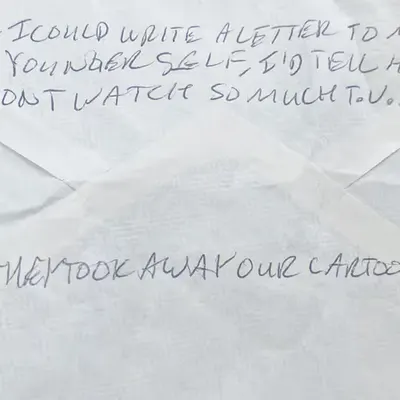 I COULD WRITE A LETTER TO
YOUNGER SELF, I'D TELL
WATCH SO MUCH T.V.
TOOK AWAY OUR